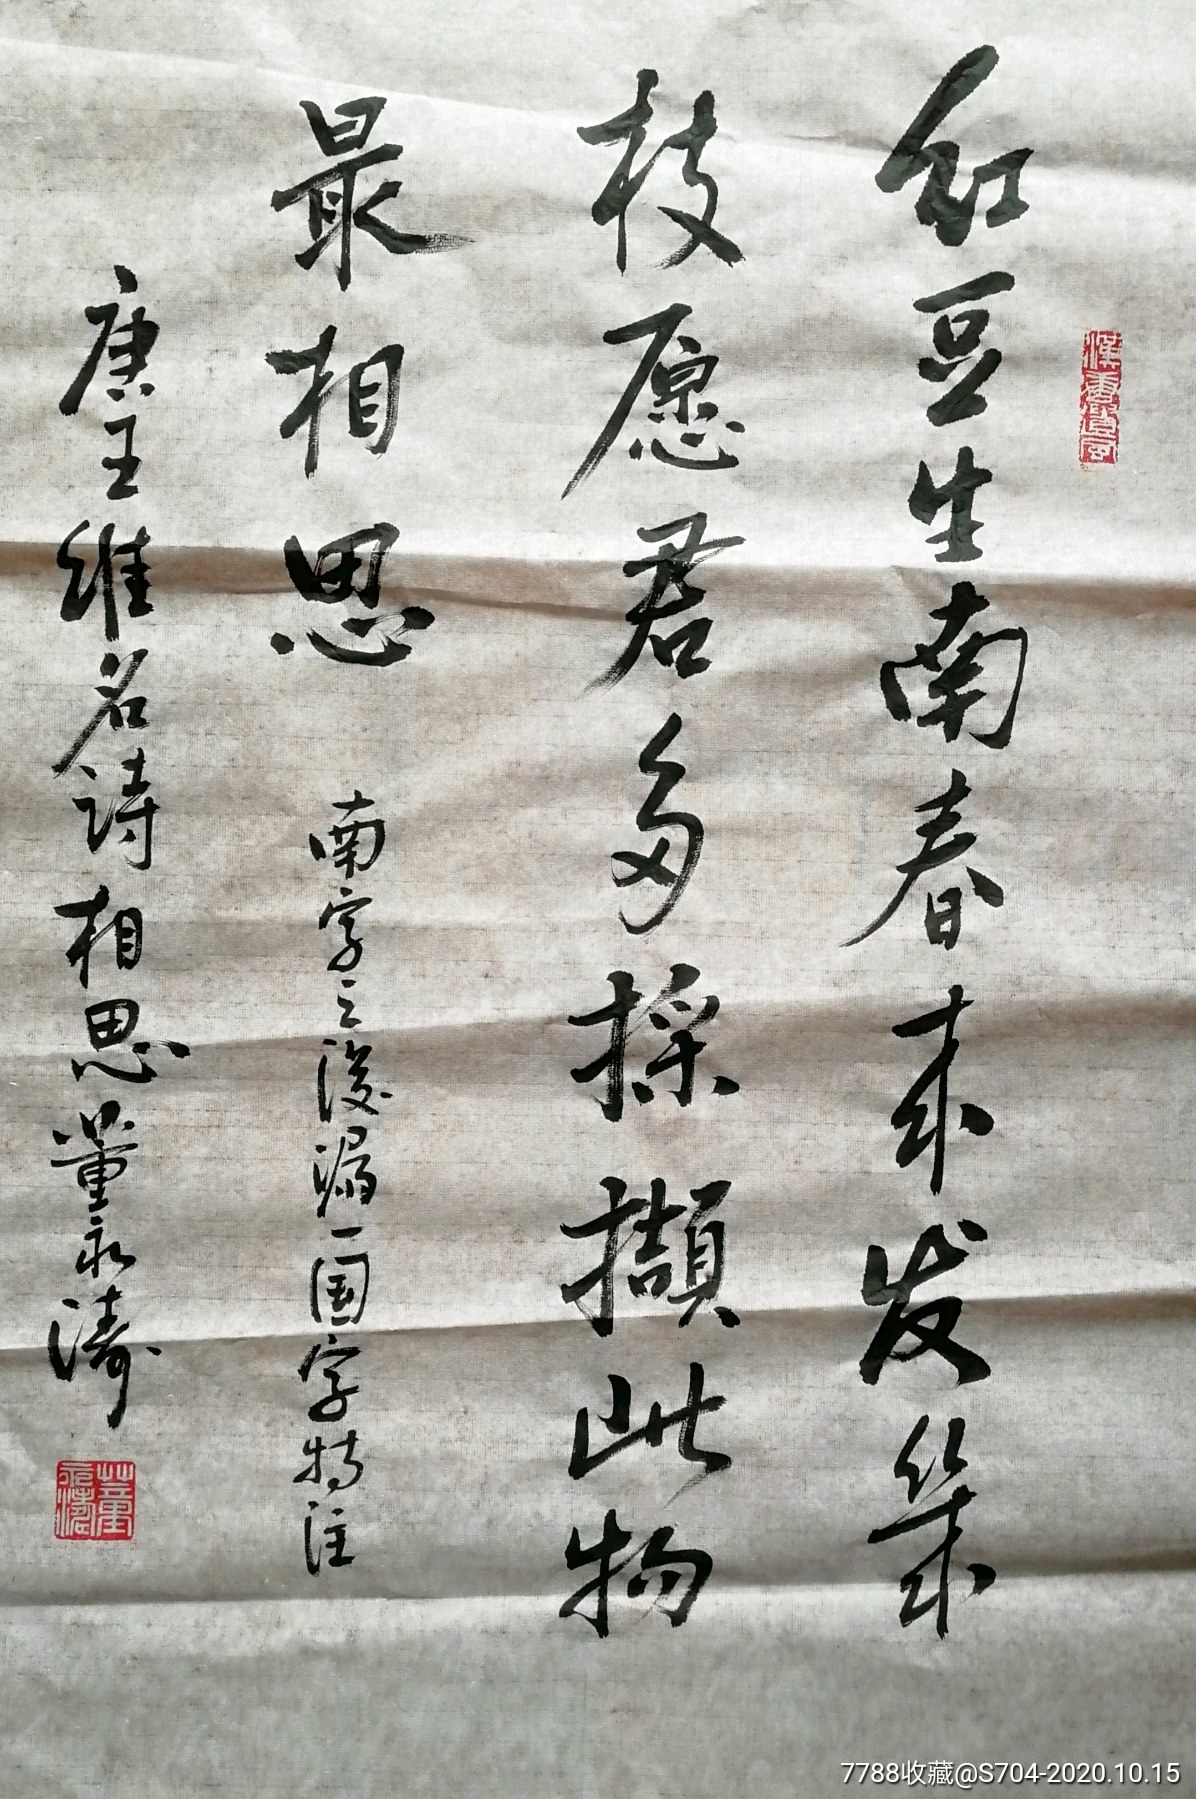 漢唐遺風
红豆生南春来发幾
枝愿君多採擷此物
最相思
南字之後漏一国字特注
唐王维名詩相思董永濤
董永濤
7788收藏@S704-2020.10.15